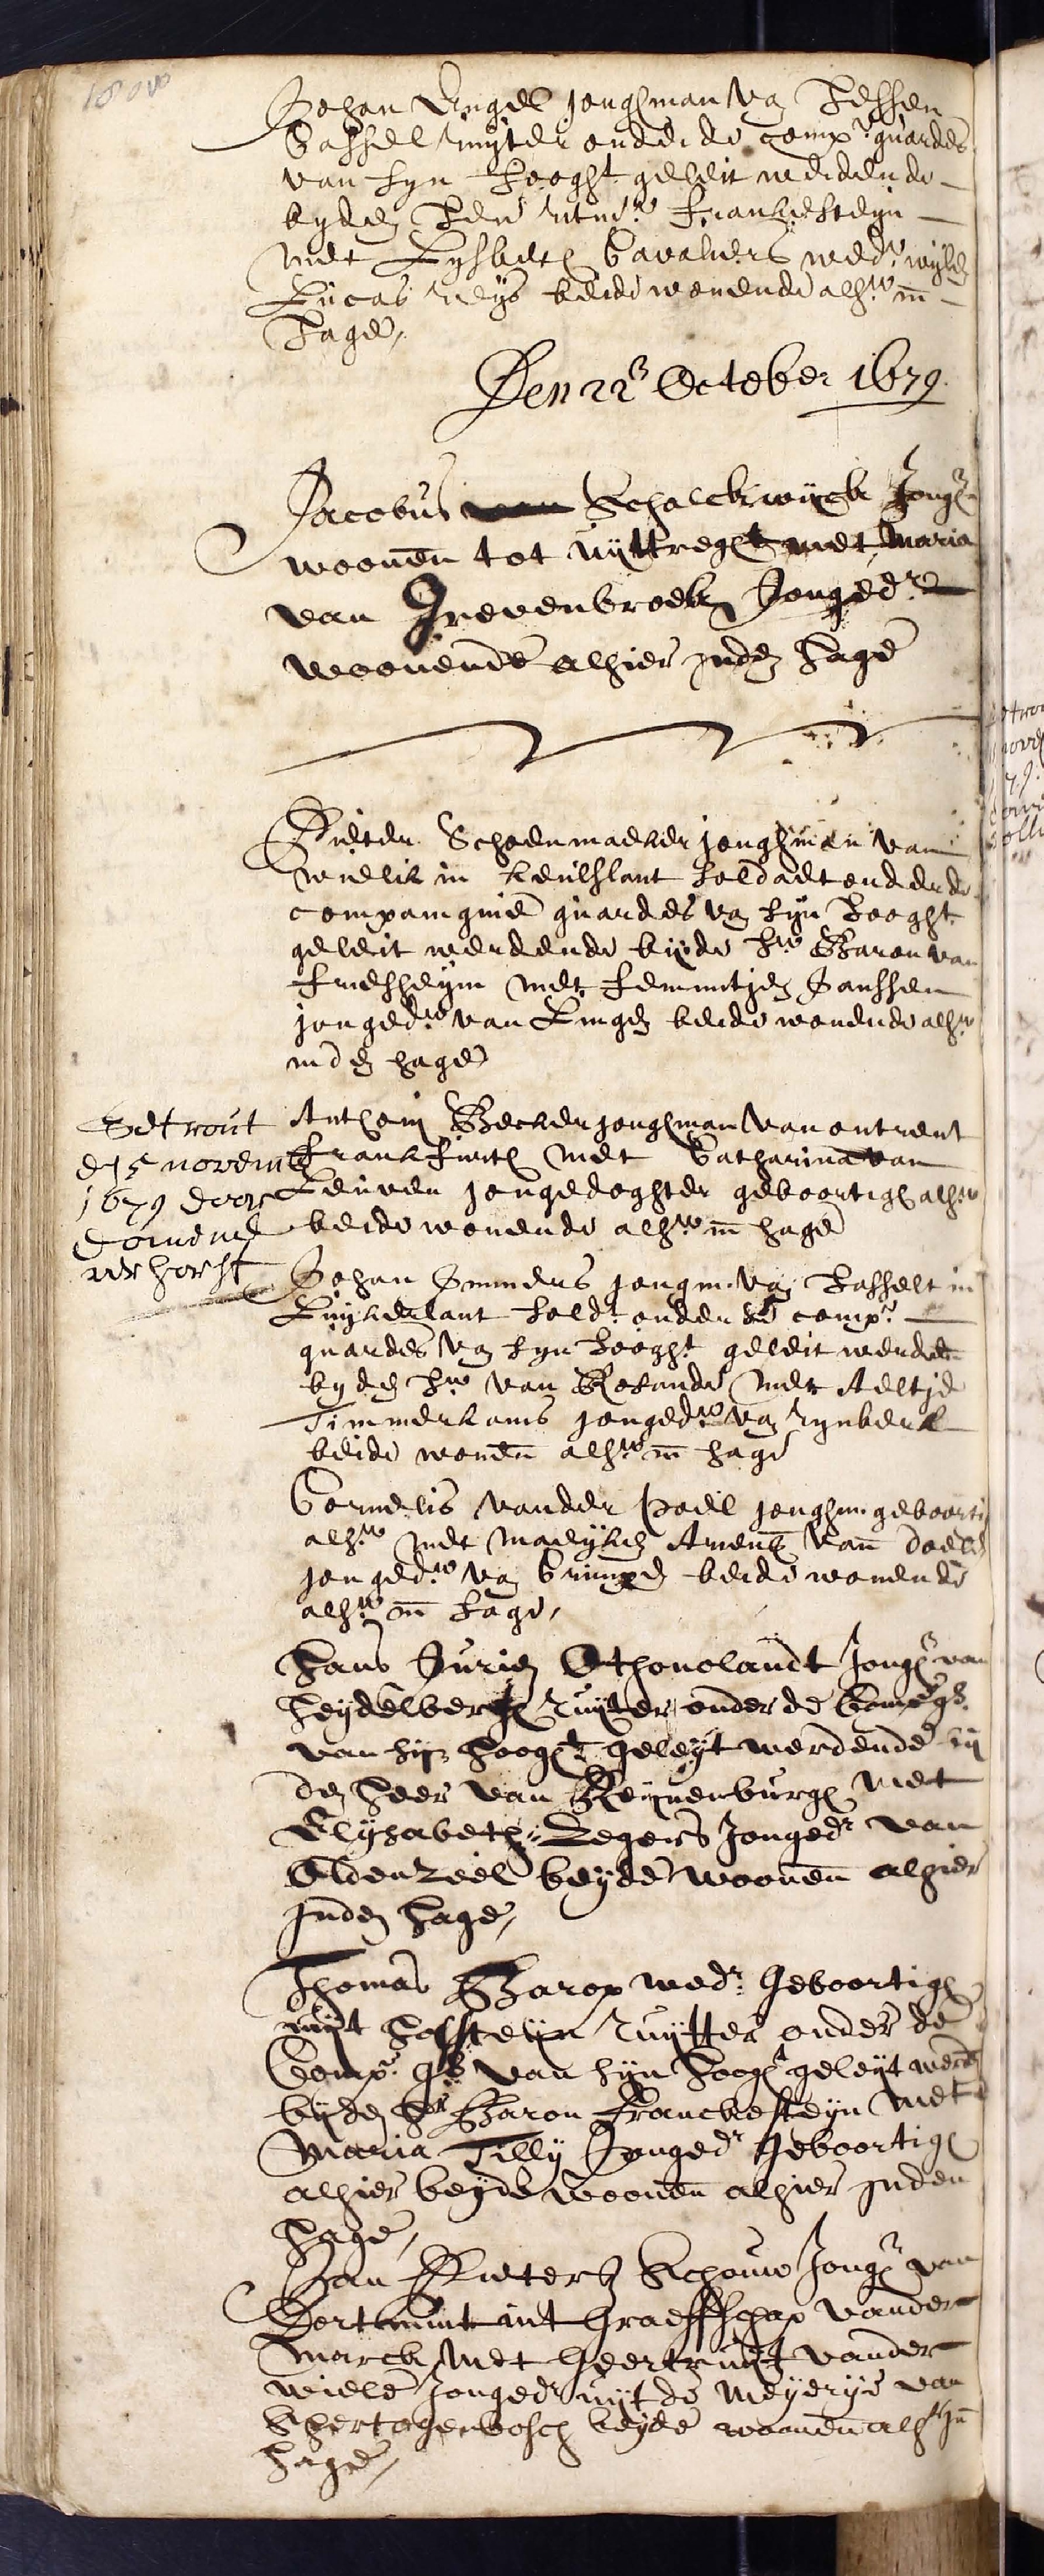 180vo
Johan Engel jonghman van Hessen
Cassel ruyter onder de comp: guardes
van syn Hooght geleit werdende
byden Heer ritmr Franckesteyn
met Lysbeth Cavaliers wedw wylen
Lucas reys beide wonende alhr in
Hage,
Den 22 October 1679
Jacobus Schalckwyck Jongm
woonen tot uyttreght met Maria
van Grevenbroeck Jongedr
woonende alhier inden Hage
Pieter Schoenmaeker jonghman van
in Keulslant soldaet onder de
compaingnie guardes van syn Hooght
geleit werdende byde hr Baron van
Friesheym met Femmitjen Janssen
jongedr van Lingen beide wonende alhr
inden hage
Getrout
den 5 novemb
1679 door
domine
ver horst
Anthoni Becker jonghman van ontrent
Franckfurth met Catharina van
Leuven jongedoghter geboortigh alhr
beide wonende alhr in hage
Johan Simmers jongm. van Hasselt in
Luyckerlant soldt onder de comp:
guardes van syn Hooght geleit werden
by den hr van Rosande met Aeltje
Timmerkams jongedr van rynberk
beide wonen alhr in hage
Cornelis vander Poel jonghm geboorti
alhr met Maryken Ariens van
jongedr van beide wonende
alhr in Hage,
Hans Jurien Jongm van
Heydelbergh Ruyter onder de Comp: gs
van syn Hooght geleyt werdende by
den Heer van Reynenburgh met
Elysabeth Segers Jongedr van
Oldenzeel beyde woonen alhier
Inden Hage,
Thomas Barop wedr: Geboortigh
uyt Holsteyn Ruytter onder de
Comp: gs van syn Hoogt geleyt werd
byden hr Baron Franckesteyn met
Maria Tilly Jongedr Geboortigh
alhier beyde woonen alhier Inden
Hage,
Jan Pieters Schouw Jongm van
Dortmunt int Graeffschap vander
Marck, met Geertruyt vander
Wiele Jongedr uyt de Meyerye van
Shertogenbosch beyde woonen alhr In
Hage,